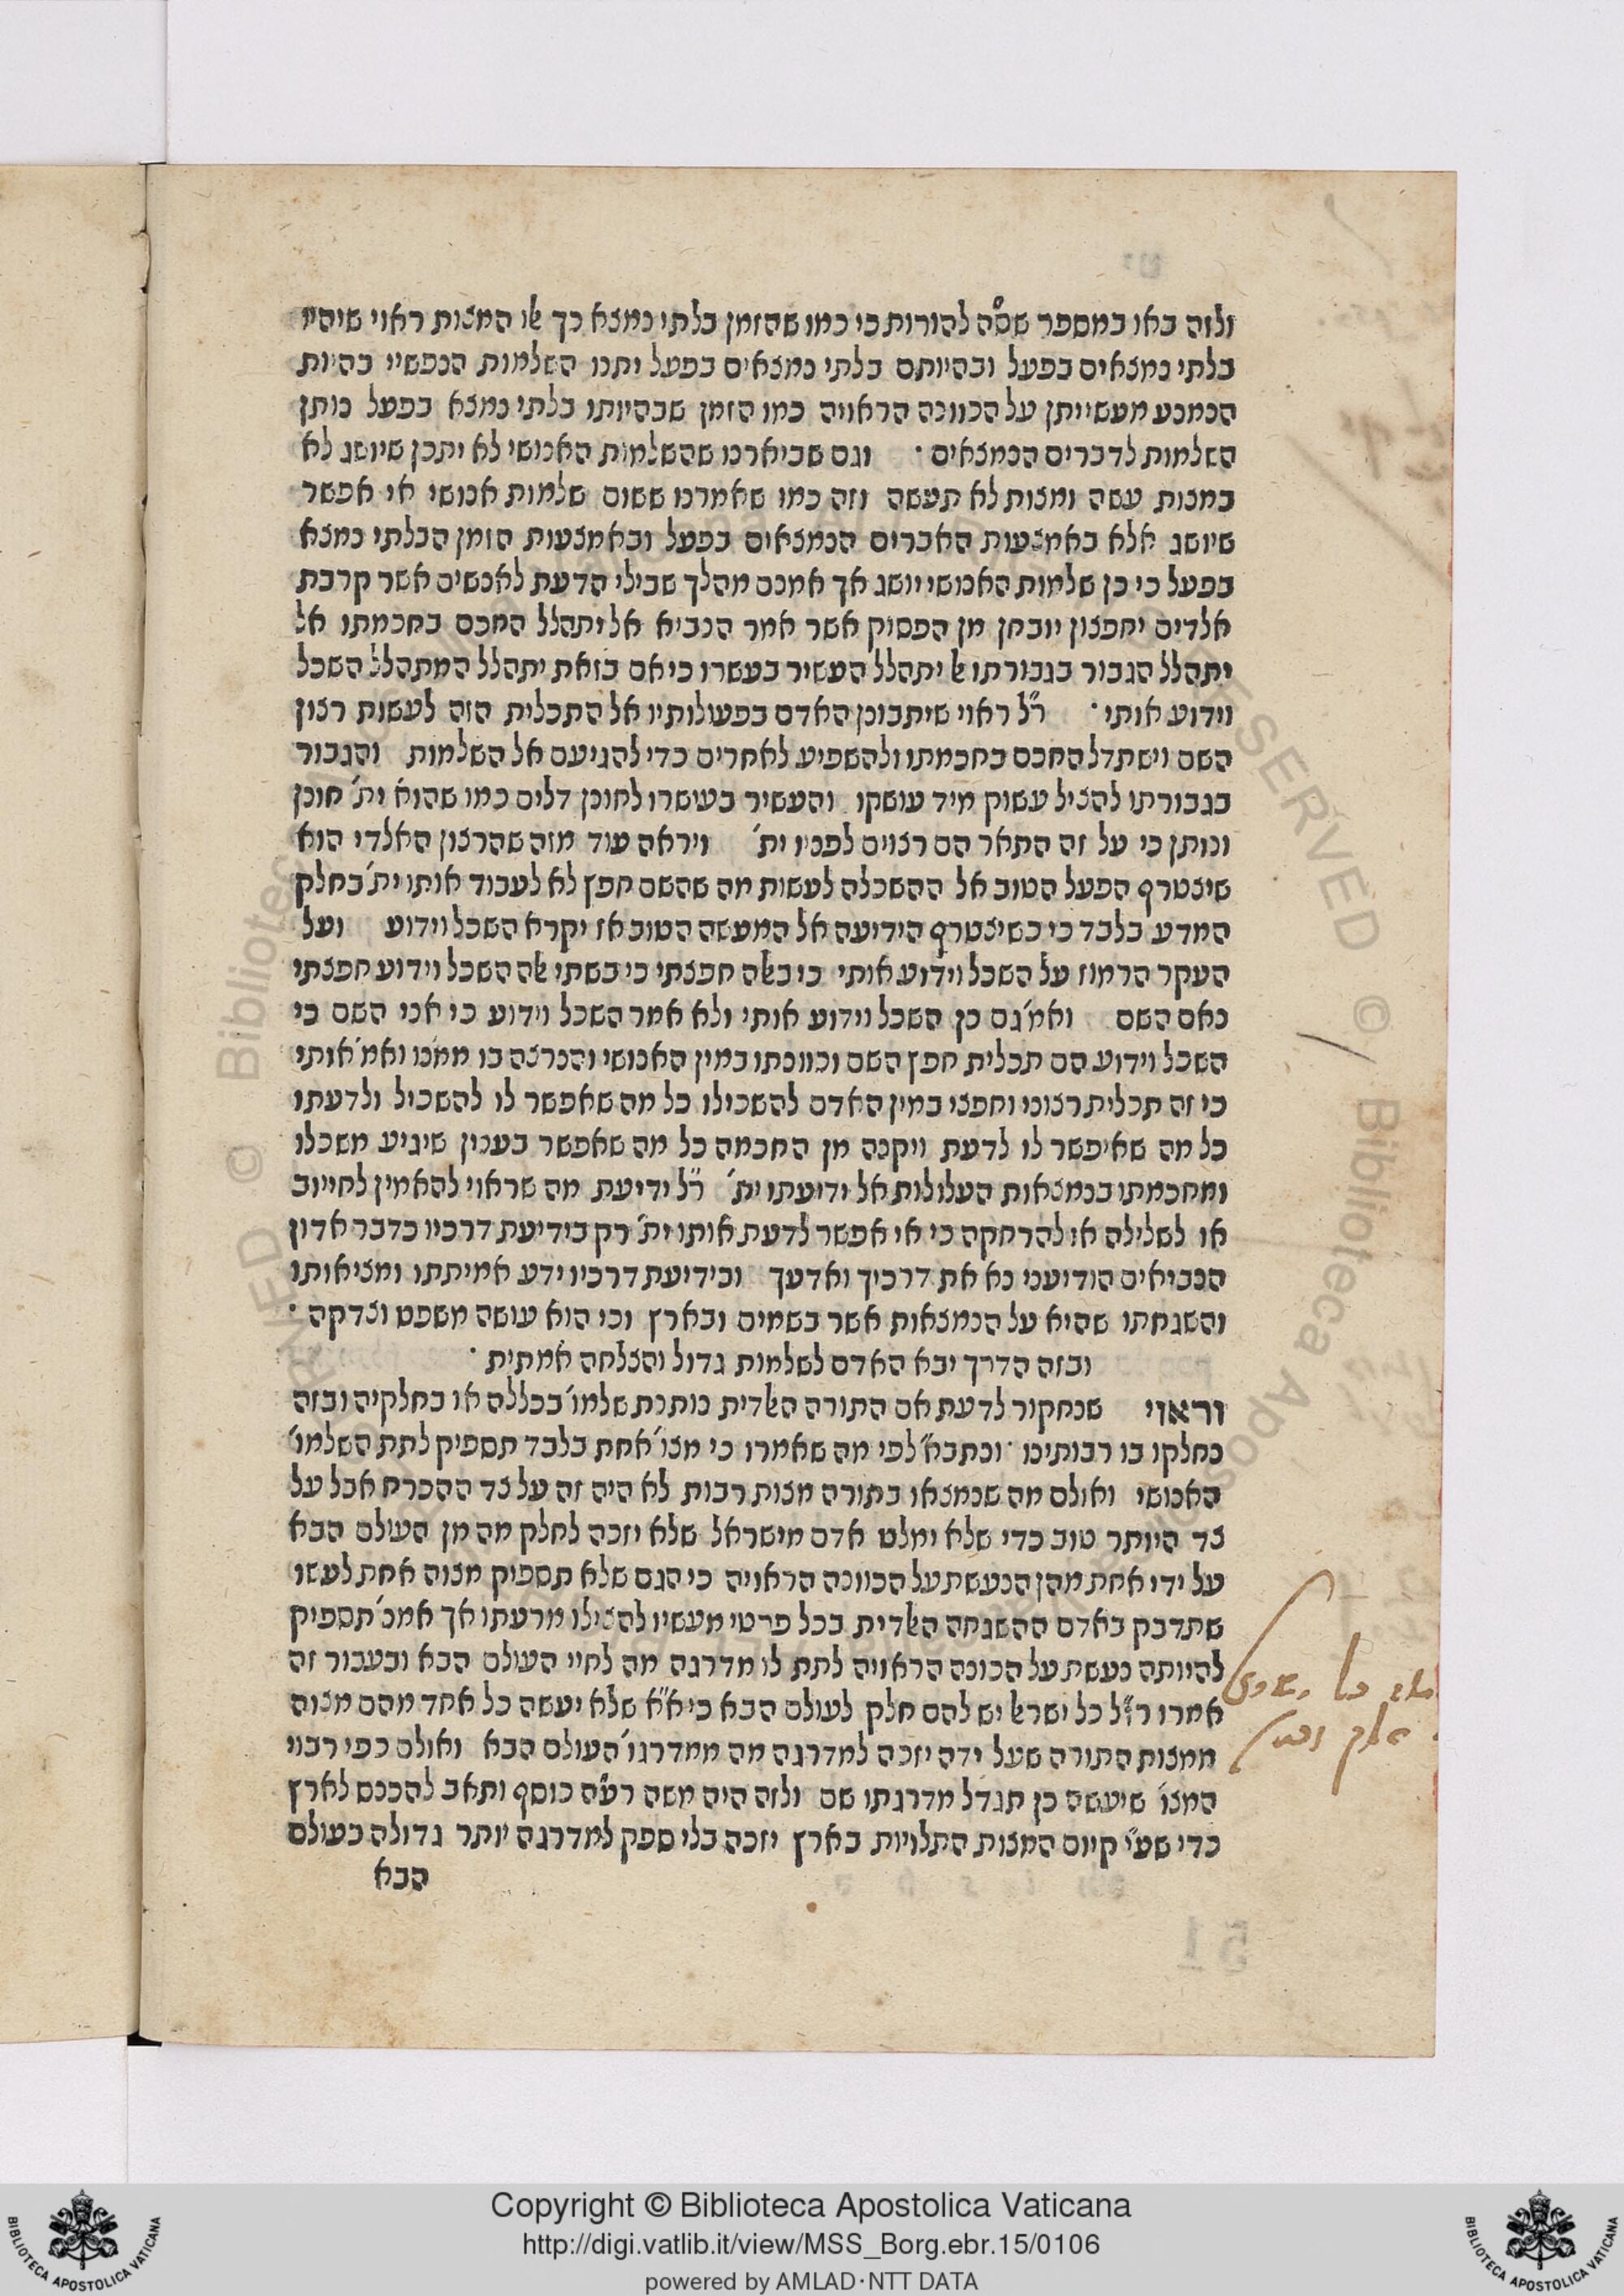 ולזה באו במספר שס֗ה להורות כי כמו שהזמן בלתי נמצא כך אלו המצות ראוי שיהיו
בלתי נמצאים בפעל ובהיותם בלתי נמצאים בפעל יתנו השלמות הנפשיי בהיות
הנמנע מעשייתן על הכוונה הראויה כמו הזמן שבהיותו בלתי נמצא בפעל נותן
השלמות לדברים הנמצאים· וגם שביארנו שהשלמות האנושי לא יתכן שיושג לא
במצות עשה ומצות לא תעשה וזה כמו שאמרנו ששום שלמות אנושי אי אפשר
שיושג אלא באמצעות האברים הנמצאים בפעל ובאמצעות הזמן הבלתי נמצא
בפעל כי כן שלמות האנושי יושג אך אמנם מהלך שבילי הדעת לאנשים אשר קרבת
אלדים יחפצון יובחן מן הפסוק אשר אמר הנביא אל יתהלל החכם בחכמתו אל
יתהלל הגבור בגבורתו אל יתהלל העשיר בעשרו כי אם בזאת יתהלל המתהלל השכל
וידוע אותי· ר״ל ראוי שיתבונן האדם בפעולותיו אל התכלית הזה לעשות רצון
השם וישתדל החכם בחכמתו ולהשפיע לאחרים כדי להגיעם אל השלמות והגבור
בגבורתו להציל עשוק מיד עושקו והעשיר בעושרו לחונן דלים כמו שהוא ית׳ חונן
ונותן כי על זה התאר הם רצוים לפניו ית׳ ויראה עוד מזה שהרצון האלדי הוא
שיצטרף הפעל הטוב אל ההשכלה לעשות מה שהשם חפץ לא לעבוד אותו ית׳ בחלק
המדע בלבד כי כשיצטרף הידיעה אל המעשה הטוב אז יקרא השכל וידוע ועל
העקר הרמוז על השכל וידוע אותי כי באלה חפצתי כי בשתי אלה השכל וידוע חפצתי
נאם השם ואמ׳ גם כן השכל וידוע אותי ולא אמר השכל וידוע כי אני השם כי
השכל וידוע הם תכלית חפץ השם וכוונתו במין האנושי והנרצה בו ממנו ואמ׳ אותי
כי זה תכלית רצוני וחפצי במין האדם להשכילו כל מה שאפשר לו להשכיל ולדעתו
כל מה שאיפשר לו לדעת ויקנה מן החכמה כל מה שאפשר בענין שיגיע משכלו
ומחכמתו בנמצאות העלולות אל ידיעתו ית׳ ר״ל ידיעת מה שראוי להאמין לחייוב
או לשלילה או להרחקה כי אי אפשר לדעת אותו ית׳ רק בידיעת דרכיו כדבר אדון
הנביאים הודיעני נא את דרכיך ואדעך ובידיעת דרכיו ידע אמיתתו ומציאותו
והשגחתו שהיא על הנמצאות אשר בשמים ובארץ וכי הוא עושה משפט וצדקה·
ובזה הדרך יבא האדם לשלמות גדול והצלחה אמתית·
וראוי שנחקור לדעת אם התורה האלדית נותנת שלמו׳ בכללה או בחלקיה ובזה
נחלקו בו רבותינו· ונכתבא״ לפי מה שאמרו כי מצו׳ אחת בלבד תספיק לתת השלמו׳
האנושי ואולם מה שנמצאו בתורה מצות רבות לא היה זה על צד ההכרח אבל על
צד היותר טוב כדי שלא ימלט אדם מישראל שלא יזכה לחלק מה מן העולם הבא
על ידי אחת מהן הנעשת על הכוונה הראויה כי הגם שלא תספיק מצוה אחת לעשו
שתדבק באדם ההשגחה האלדית בכל פרטי מעשיו להצילו מרעתו אך אמנ׳ תספיק
להיותה נעשת על הכונה הראויה לתת לו מדרגה מה לחיי העולם הבא ובעבור זה
אמרו רז״ל כל ישראל יש להם חלק לעולם הבא כי א״א שלא יעשה כל אחד מהם מצוה
ממצות התורה שעל ידה יזכה למדרגה מה ממדרגו׳ העולם הבא ואולם כפי רבוי
המצו׳ שיעשה כן תגדל מדרגתו שם ולזה היה משה רע״ה נוסף ותאב להכנס לארץ
כדי שע״י קיום המצות התלויות בארץ יזכה בלי ספק למדרגה יותר גדולה בעולם
הבא
Copyright © Biblioteca Apostolica Vaticana
http://digi.vatlib.it/view/MSS_Borg.ebr.15/0106
powered by AMLAD·NTT DATA